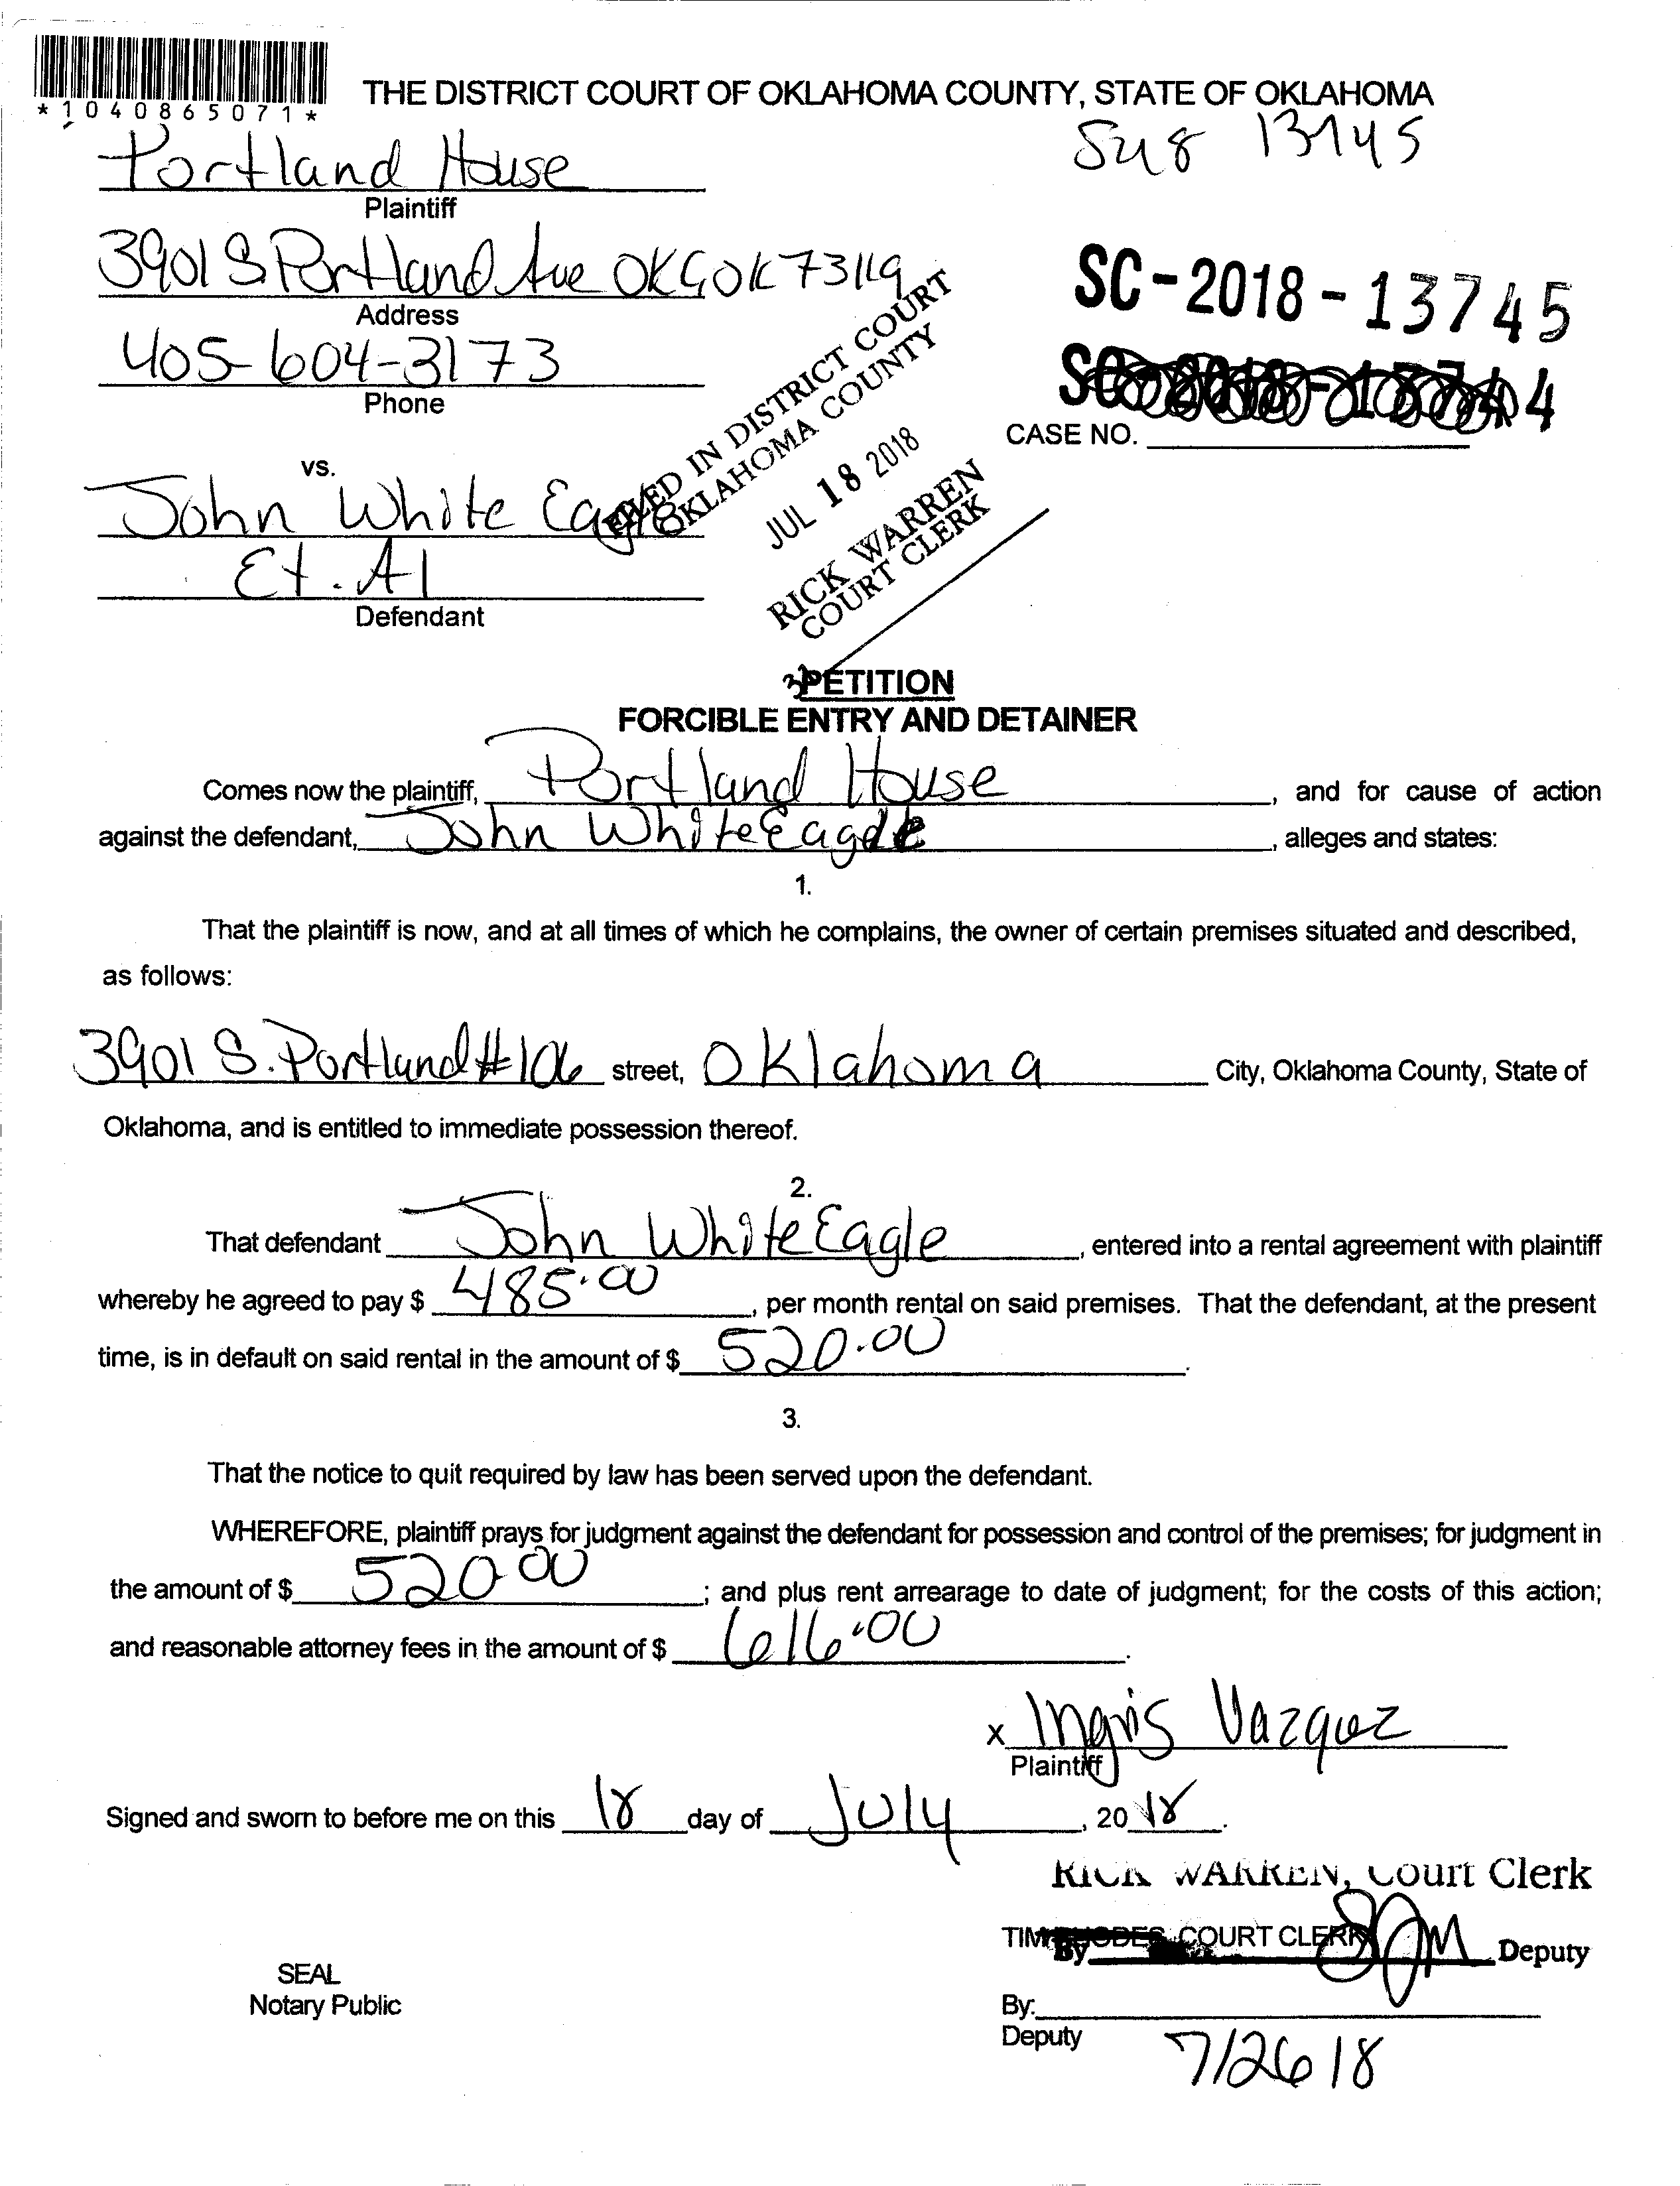 *1040865071*
THE DISTRICT COURT OF OKLAHOMA COUNTY, STATE OF OKLAHOMA
Portland House
Plaintiff
13745
3901 S Portland Ave OKC OK 73119
Address
SC-2018-13745
405-604-3173
Phone
SC-2018-13744
CASE NO.
FILED IN DISTRICT COURT
OKLAHOMA COUNTY
JUL 18 2018
RICK WARREN
COURT CLERK
vs.
John White Eagle
Et. Al
Defendant
PETITION
FORCIBLE ENTRY AND DETAINER
Comes now the plaintiff, Portland House, and for cause of action
against the defendant, John WhiteEagle, alleges and states:
1.
That the plaintiff is now, and at all times of which he complains, the owner of certain premises situated and described,
as follows:
3901 S. Portland #106 street, Oklahoma City, Oklahoma County, State of
Oklahoma, and is entitled to immediate possession thereof.
2.
That defendant John WhiteEagle, entered into a rental agreement with plaintiff
whereby he agreed to pay $ 485.00, per month rental on said premises. That the defendant, at the present
time, is in default on said rental in the amount of $ 520.00.
3.
That the notice to quit required by law has been served upon the defendant.
WHEREFORE, plaintiff prays for judgment against the defendant for possession and control of the premises; for judgment in
the amount of $ 520.00; and plus rent arrearage to date of judgment; for the costs of this action;
and reasonable attorney fees in the amount of $ 616.00.
x Ingris Vazquez
Plaintiff
Signed and sworn to before me on this 18 day of July, 2018.
RICK WARREN, Court Clerk
TIM RHODES, COURT CLERK
By Deputy
SEAL
Notary Public
By:
Deputy
7/26 18